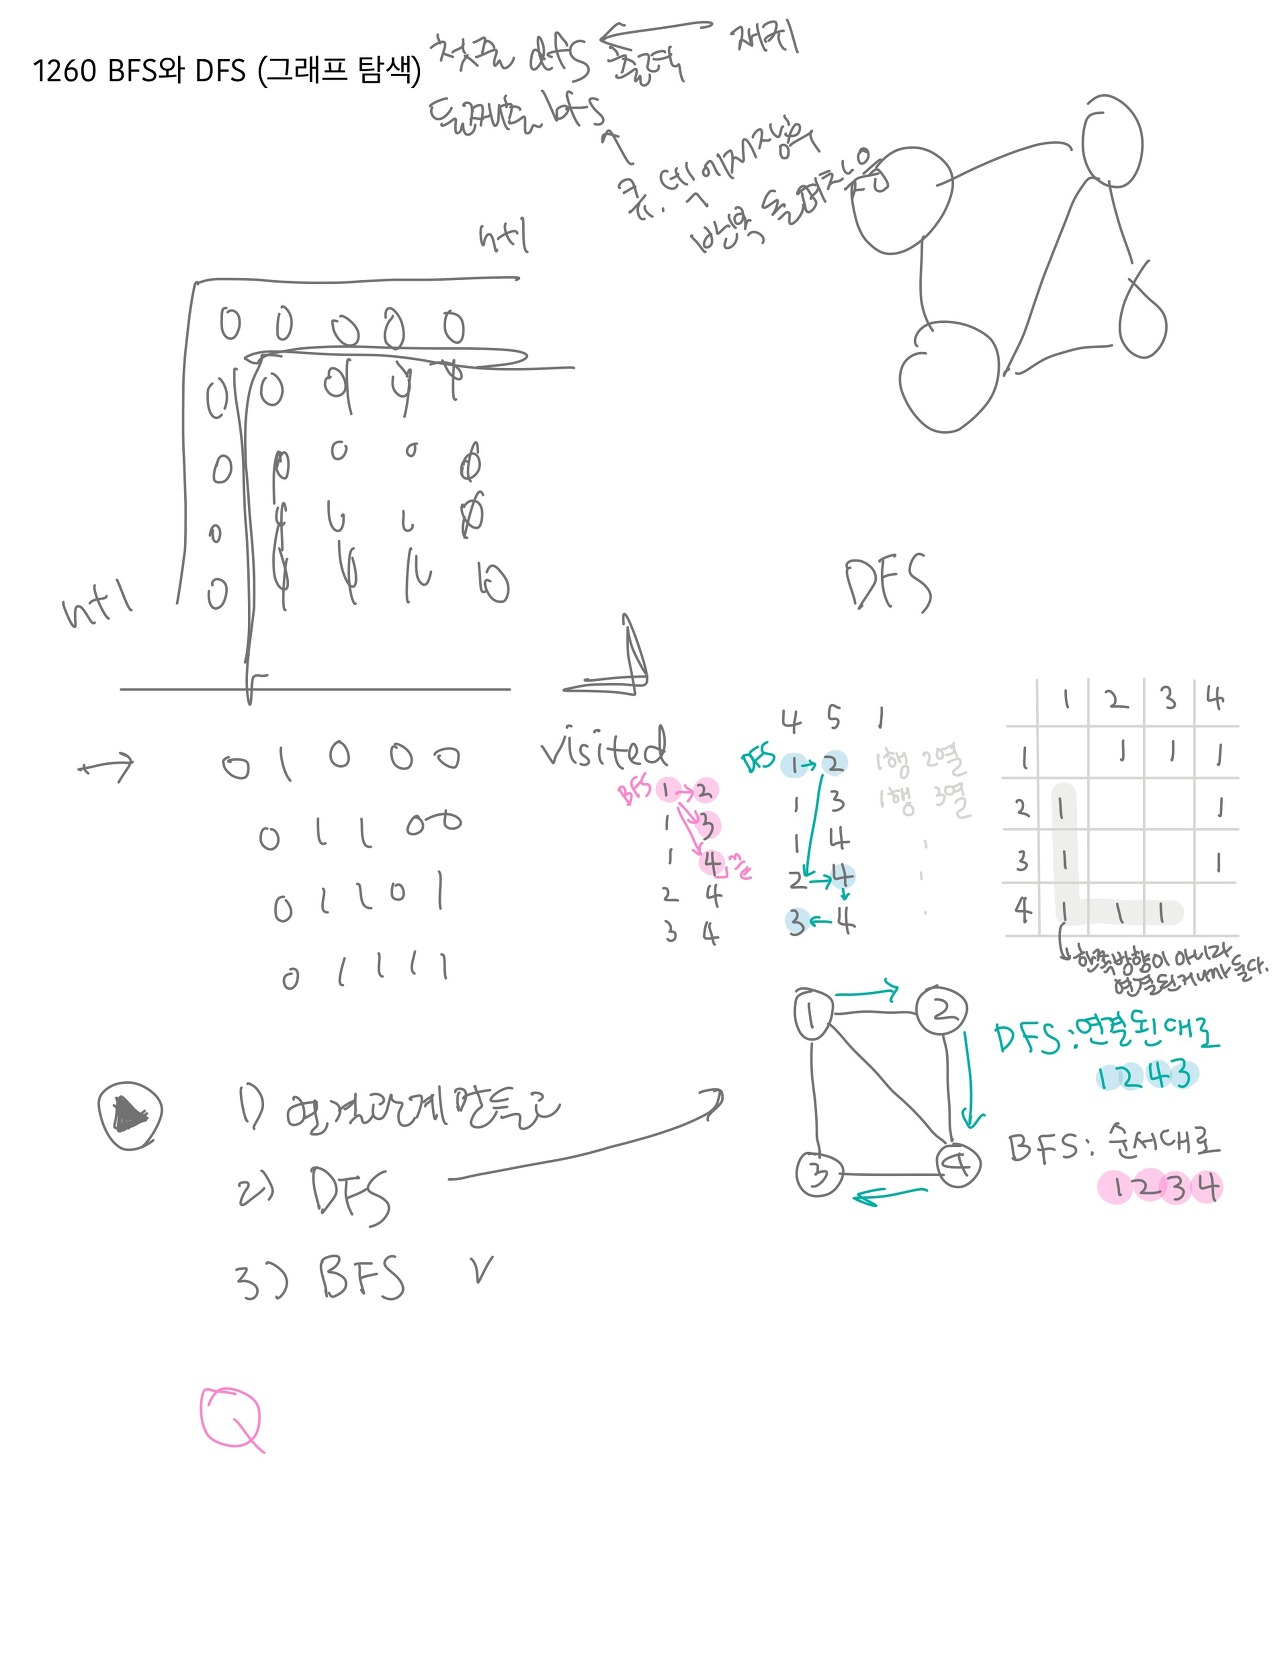 1260 BFS와 DFS (그래프 탐색)
첫줄 dfs 출력 재귀
둘째줄 bfs
큐. 덱
반복
n+1
0 0 0 0 0
0 0
0 0 0
0
0
n+1
0 1 0 0 0 visited
0 1 1 0 0
0 1 1 0 1
0 1 1 1 1
1) 연결관계 만들고
2) DFS
3) BFS V
Q
DFS
BFS 1 2
1 3
1 4
2 4
3 4
4 5 1
DFS 1 2 1행 2열
1 3 1행 3열
1 4
2 4
3 4
1 2 3 4
1 1 1 1
2 1 1
3 1 1
4 1 1 1
한쪽방향이 아니라
연결된거니까 둘다.
1 2
3 4
DFS : 연결된대로
1 2 4 3
BFS : 순서대로
1 2 3 4